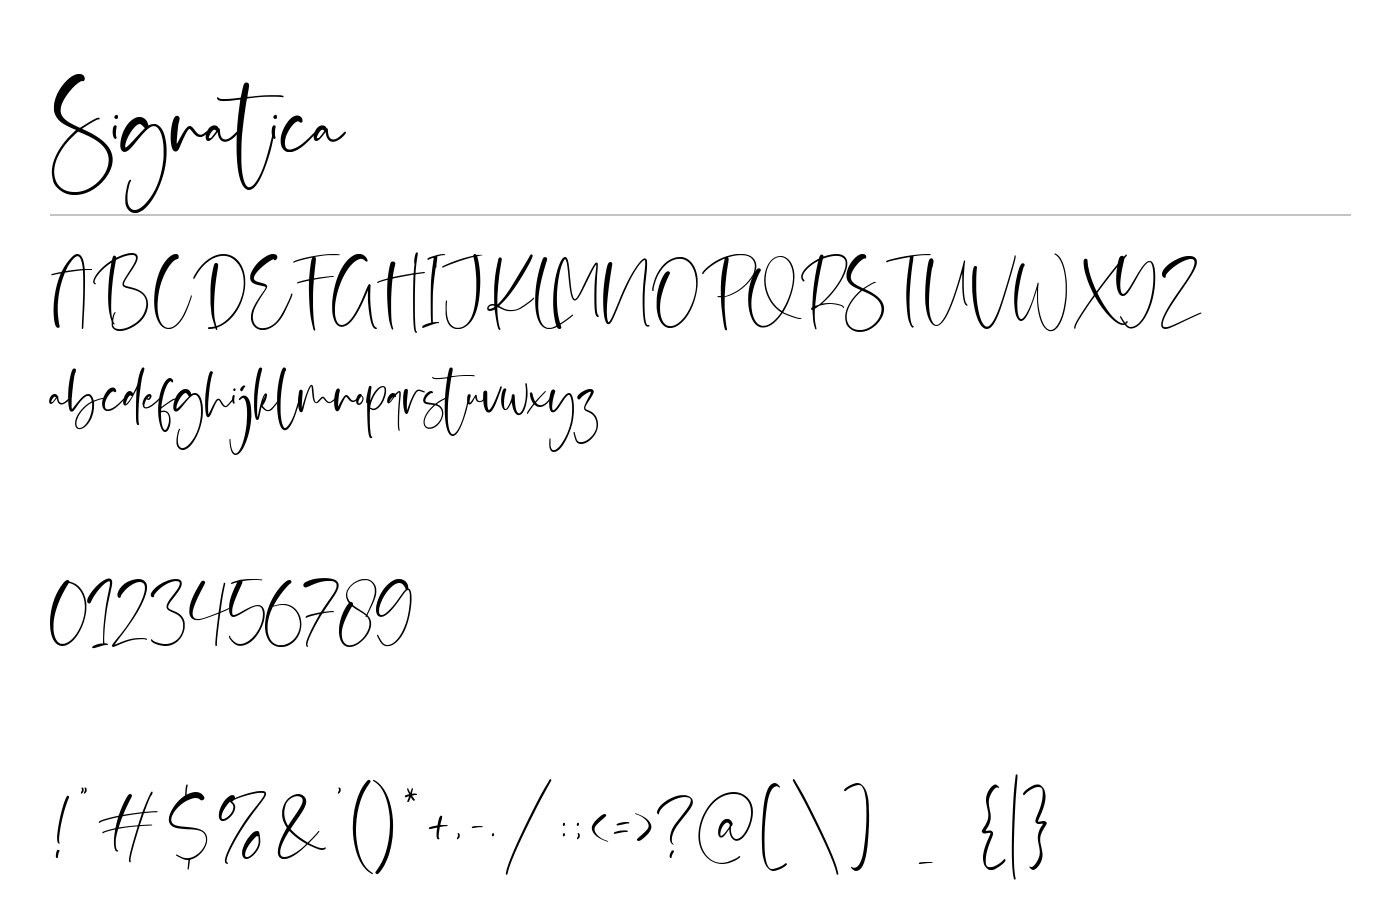 Signatica
ABCDEFGHIJKLMNOPQRSTUVWXYZ
abcdefghijklmnopqrstuvwxyz
0123456789
!"#$%&'()*+,-./:;<=>?@[\]_{|}